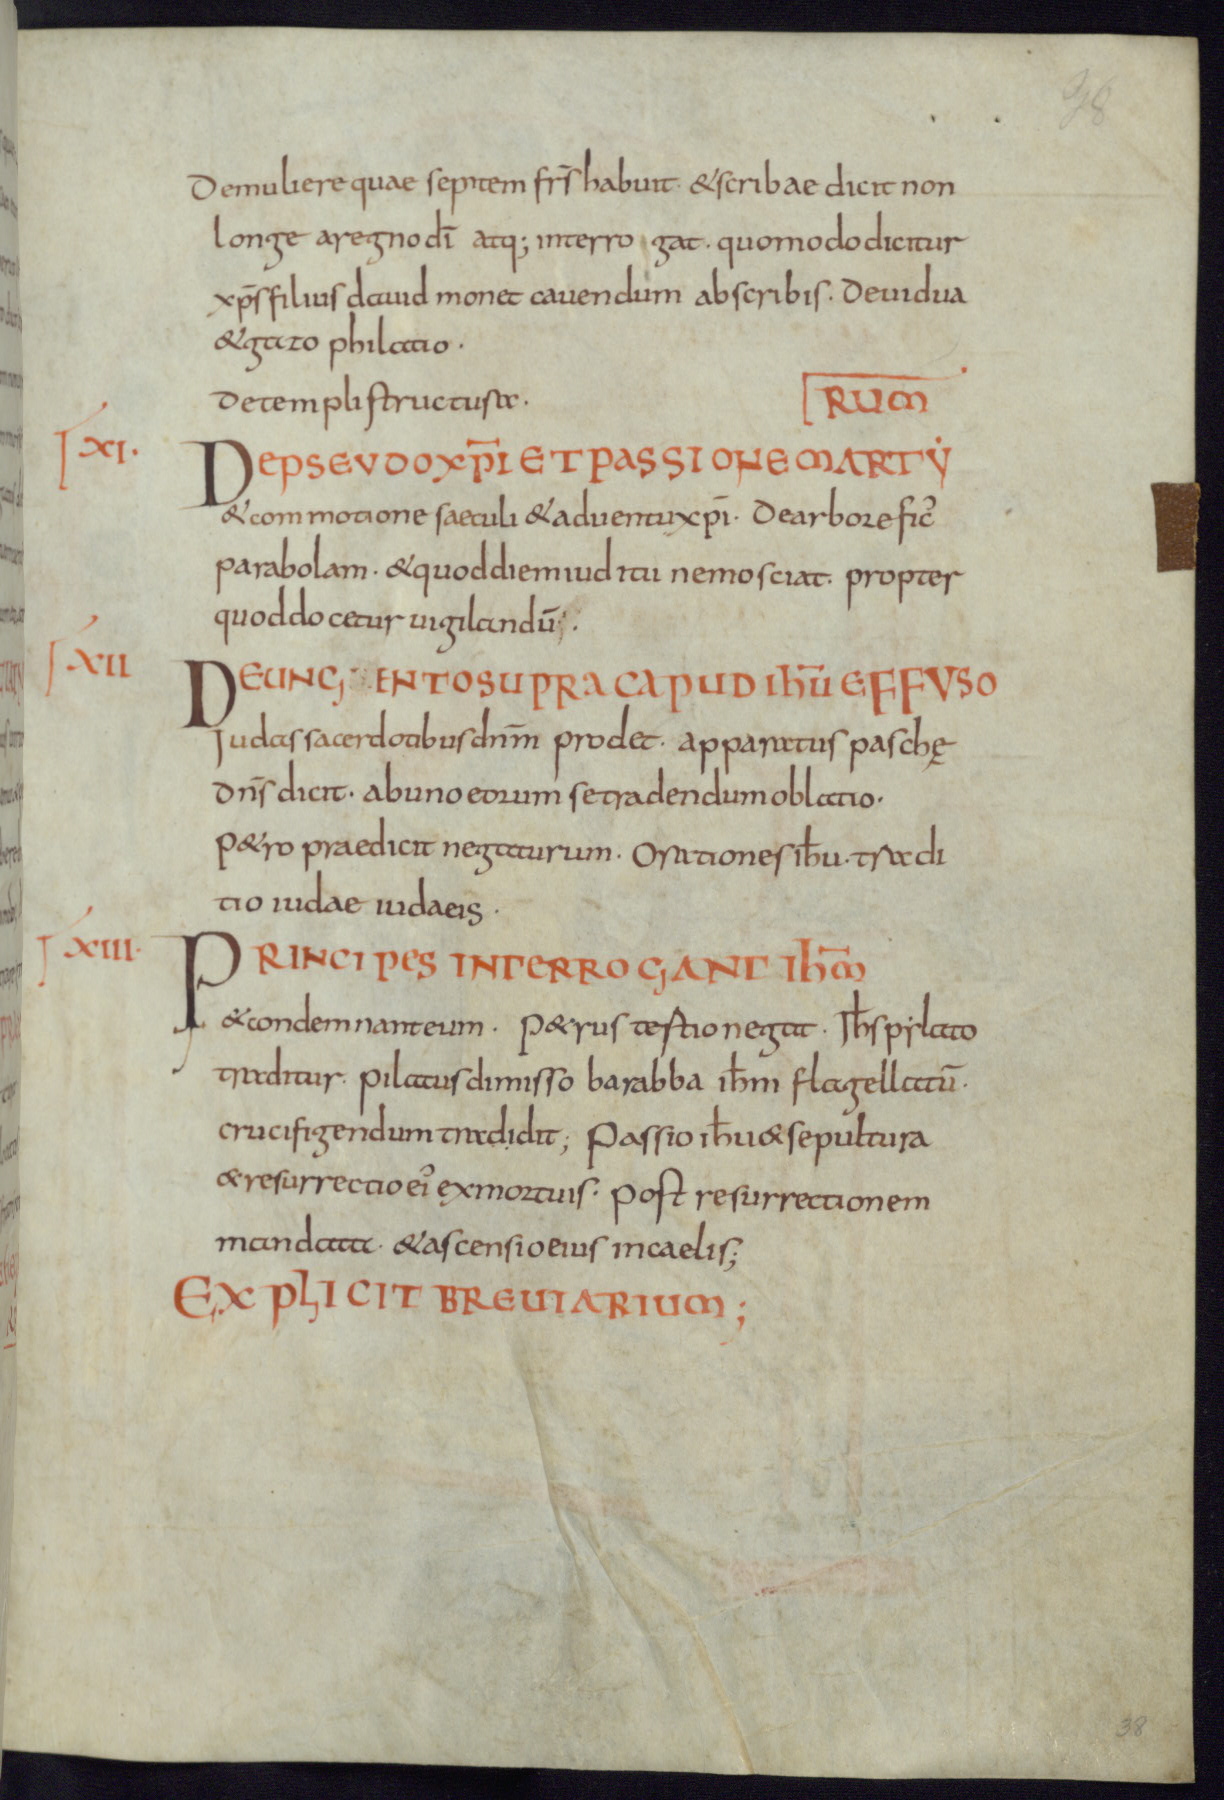 38
De muliere quae septem fr̄s habuit· & scribae dicit non
longe a regno dī atq; interrogat· quomodo dicitur
xp̄s filius dauid monet cauendum ab scribis· De uidua
& gazophilatio·
De templi structura·
RUM
XI·
DE PSEVDOXP̄I ET PASSIONE MARTY
& commotione saeculi & aduentu xp̄i· De arbore fic̄
parabolam· & quod diem iuditii nemo sciat· propter
quod docetur uigilandū·
XII
DE UNG ENTO SUPRA CAPUD IHŪ EFFVSO
Iudas sacerdotibus dn̄m prodet· apparatus paschę
dn̄s dicit· ab uno eorum se tradendum oblatio·
P&ro praedicit negaturum· Orationes ih̄u· tradi
tio iudae iudaeis·
XIII·
PRINCIPES INTERROGANT IHM̄
& condemnant eum· P&rus tertio negat· Ih̄s pylato
traditur· pilatus dimisso barabba ih̄m flagellatū·
crucifigendum tradidit; Passio ih̄u & sepultura
& resurrectio ei' ex mortuis· Post resurrectionem
mandata· & ascensio eius in caelis;
EXPLICIT BREUIARIUM;
38